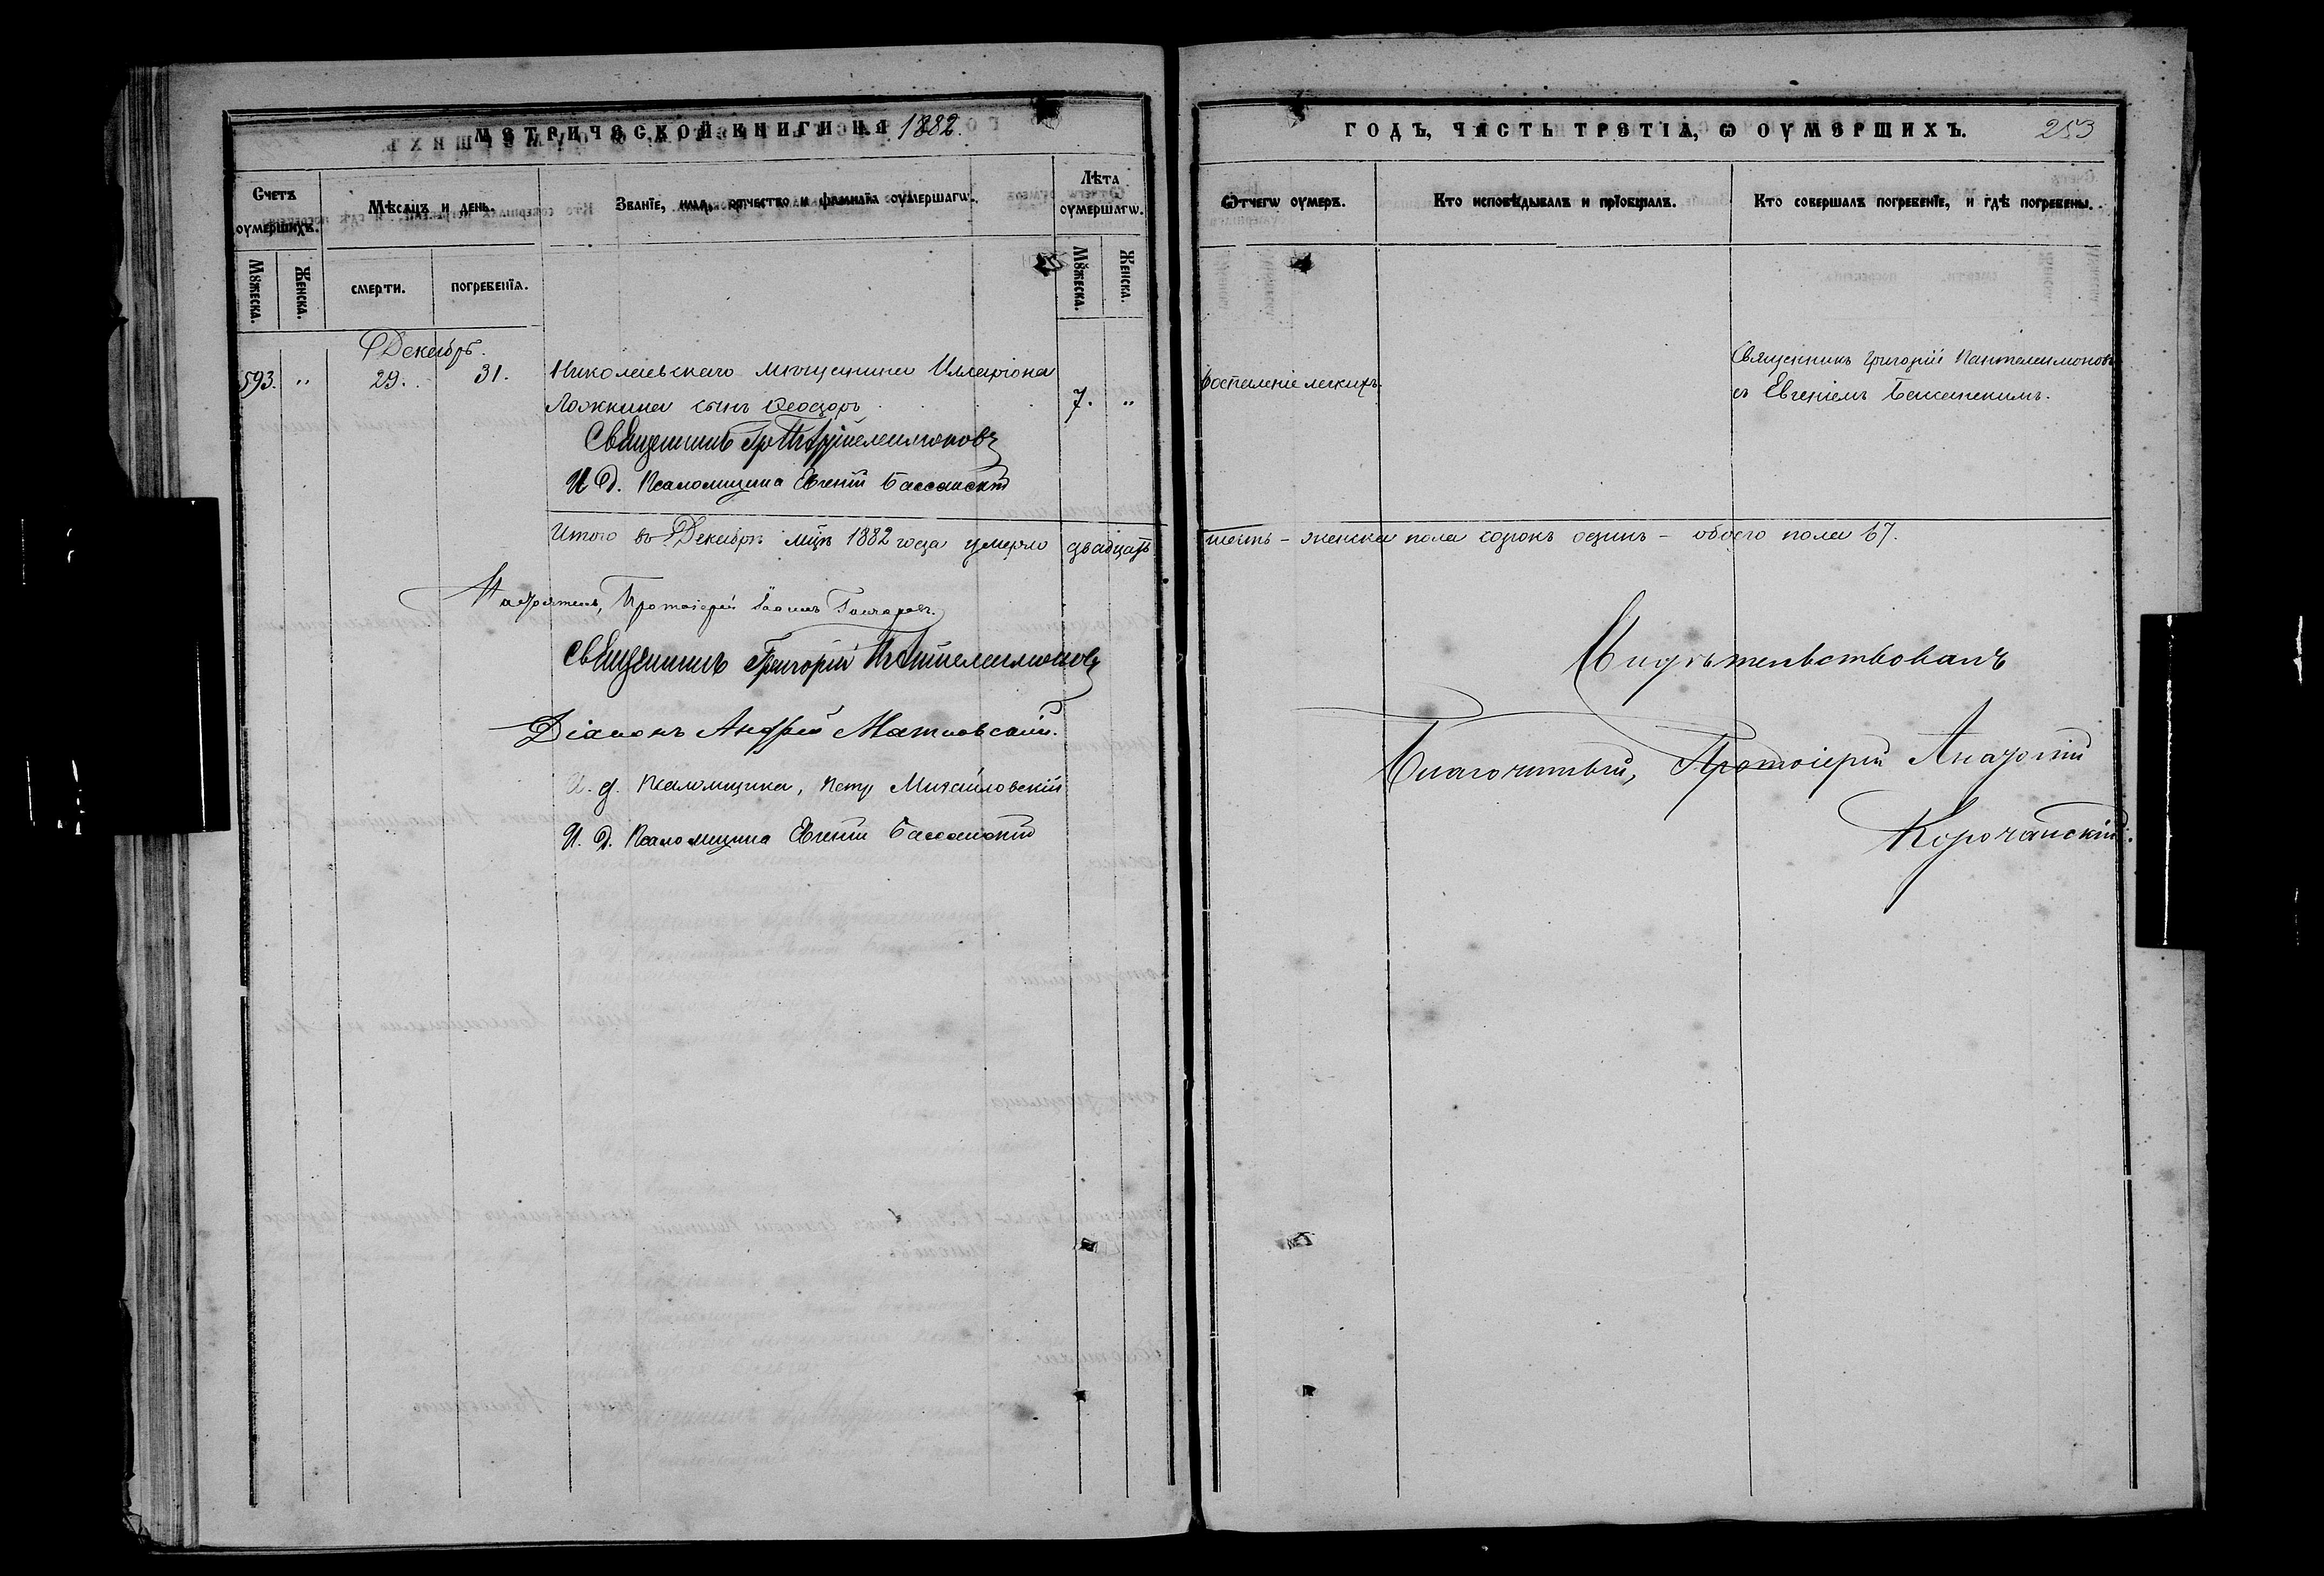 МЕТРИЧЕСКОЙ КНИГИ НА 1882.
ГОДЪ, ЧАСТЬ ТРЕТІѦ, Ѡ ОУМЕРШИХЪ.
253
Счетъ оумершихъ.
Мѣсѧцъ и день.
Званїе, имѧ, отчество и фамилїѧ оумершагѡ.
Лѣта оумершагѡ.
Ѿ чегѡ оумеръ.
Кто исповѣдывалъ и прїобщалъ.
Кто совершалъ погребенїе, и гдѣ погребены.
Мꙋжеска.
Женска.
смерти.
погребенїѧ.
Мꙋжеска.
Женска.
Декабрь.
593. " 29. 31. Николаевскаго мѣщанина Илларіона
Ложкина сынъ Ѳеодоръ 7. "
Воспаленіе легкихъ.
Священникъ Григорій Пантелеимоновъ
съ Евгеніемъ Бассанскимъ.
Священникъ Гр Пантелеимоновъ
И Д. Псаломщика Евгеній Бассанскій
Итого въ Декабрѣ мцѣ 1882 года умерло двадцать
шесть - женска пола сорокъ одинъ - обоего пола 67.
Настоятель, Протоіерей Іоаннъ Гончаровъ.
Священникъ Григорій Пантелеимоновъ
Діаконъ Андрей Матковскій.
И. д. Псаломщика, Петръ Михайловскій
И. Д. Псаломщика Евгеній Бассанскій
Свидѣтельствовалъ
Благочинный, Протоіерей Анатолій
Корочанскій.